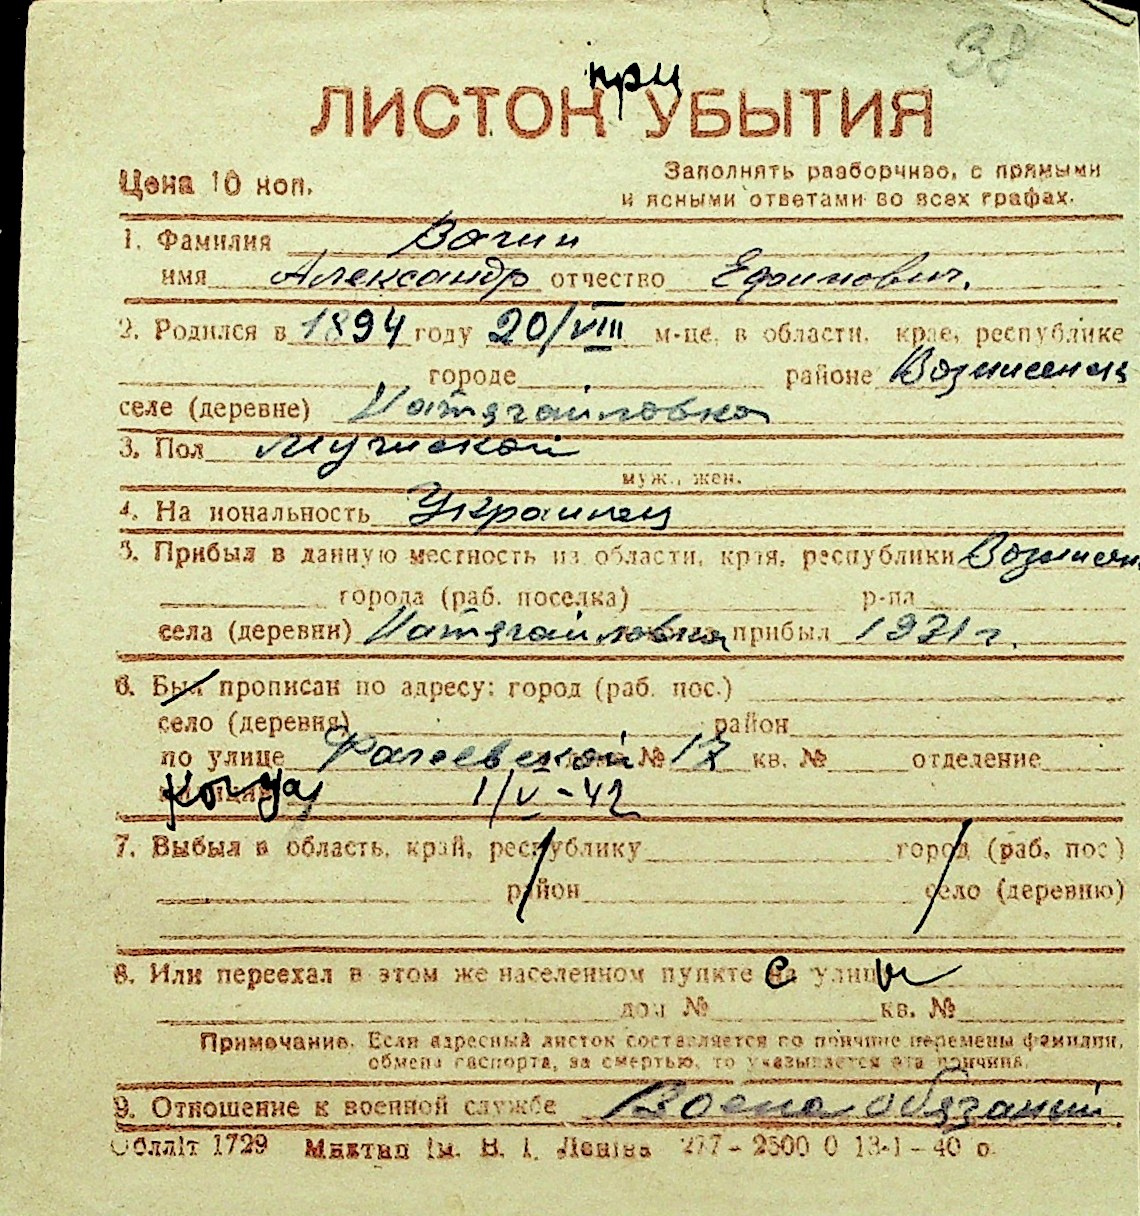 38
при
ЛИСТОК УБЫТИЯ
Цена 10 коп.
Заполнять разборчиво, с прямыми
и ясными ответами во всех графах.
1. Фамилия Вагин
имя Александр отчество Ефимович.
2. Родился в 1894 году 20/VIII м-це, в области, крае, республике
городе районе Вознисенск
селе (деревне) Натягайловка
3. Пол мужской
муж., жен.
4. На иональность Украинец
5. Прибыл в данную местность из области, края, республики Вознисен
города (раб. поселка) р-на
села (деревни) Натягайловка прибыл 1931 г.
6. Был прописан по адресу: город (раб. пос.)
село (деревня) район
по улице № 17 кв. № отделение
когда 1/V-42
7. Выбыл в область, край, республику город (раб. пос)
район село (деревню)
8. Или переехал в этом же населенном пункте с улицы
дом № кв. №
Примечание. Если адресный листок составляется по причине перемены фамилии,
обмена паспорта, за смертью, то указывается эта причина.
9. Отношение к военной службе Военнообязаний
Обліт 1729 Миктип ім. В. І. Леніна 277 - 2500 0 13-1 - 40 о.